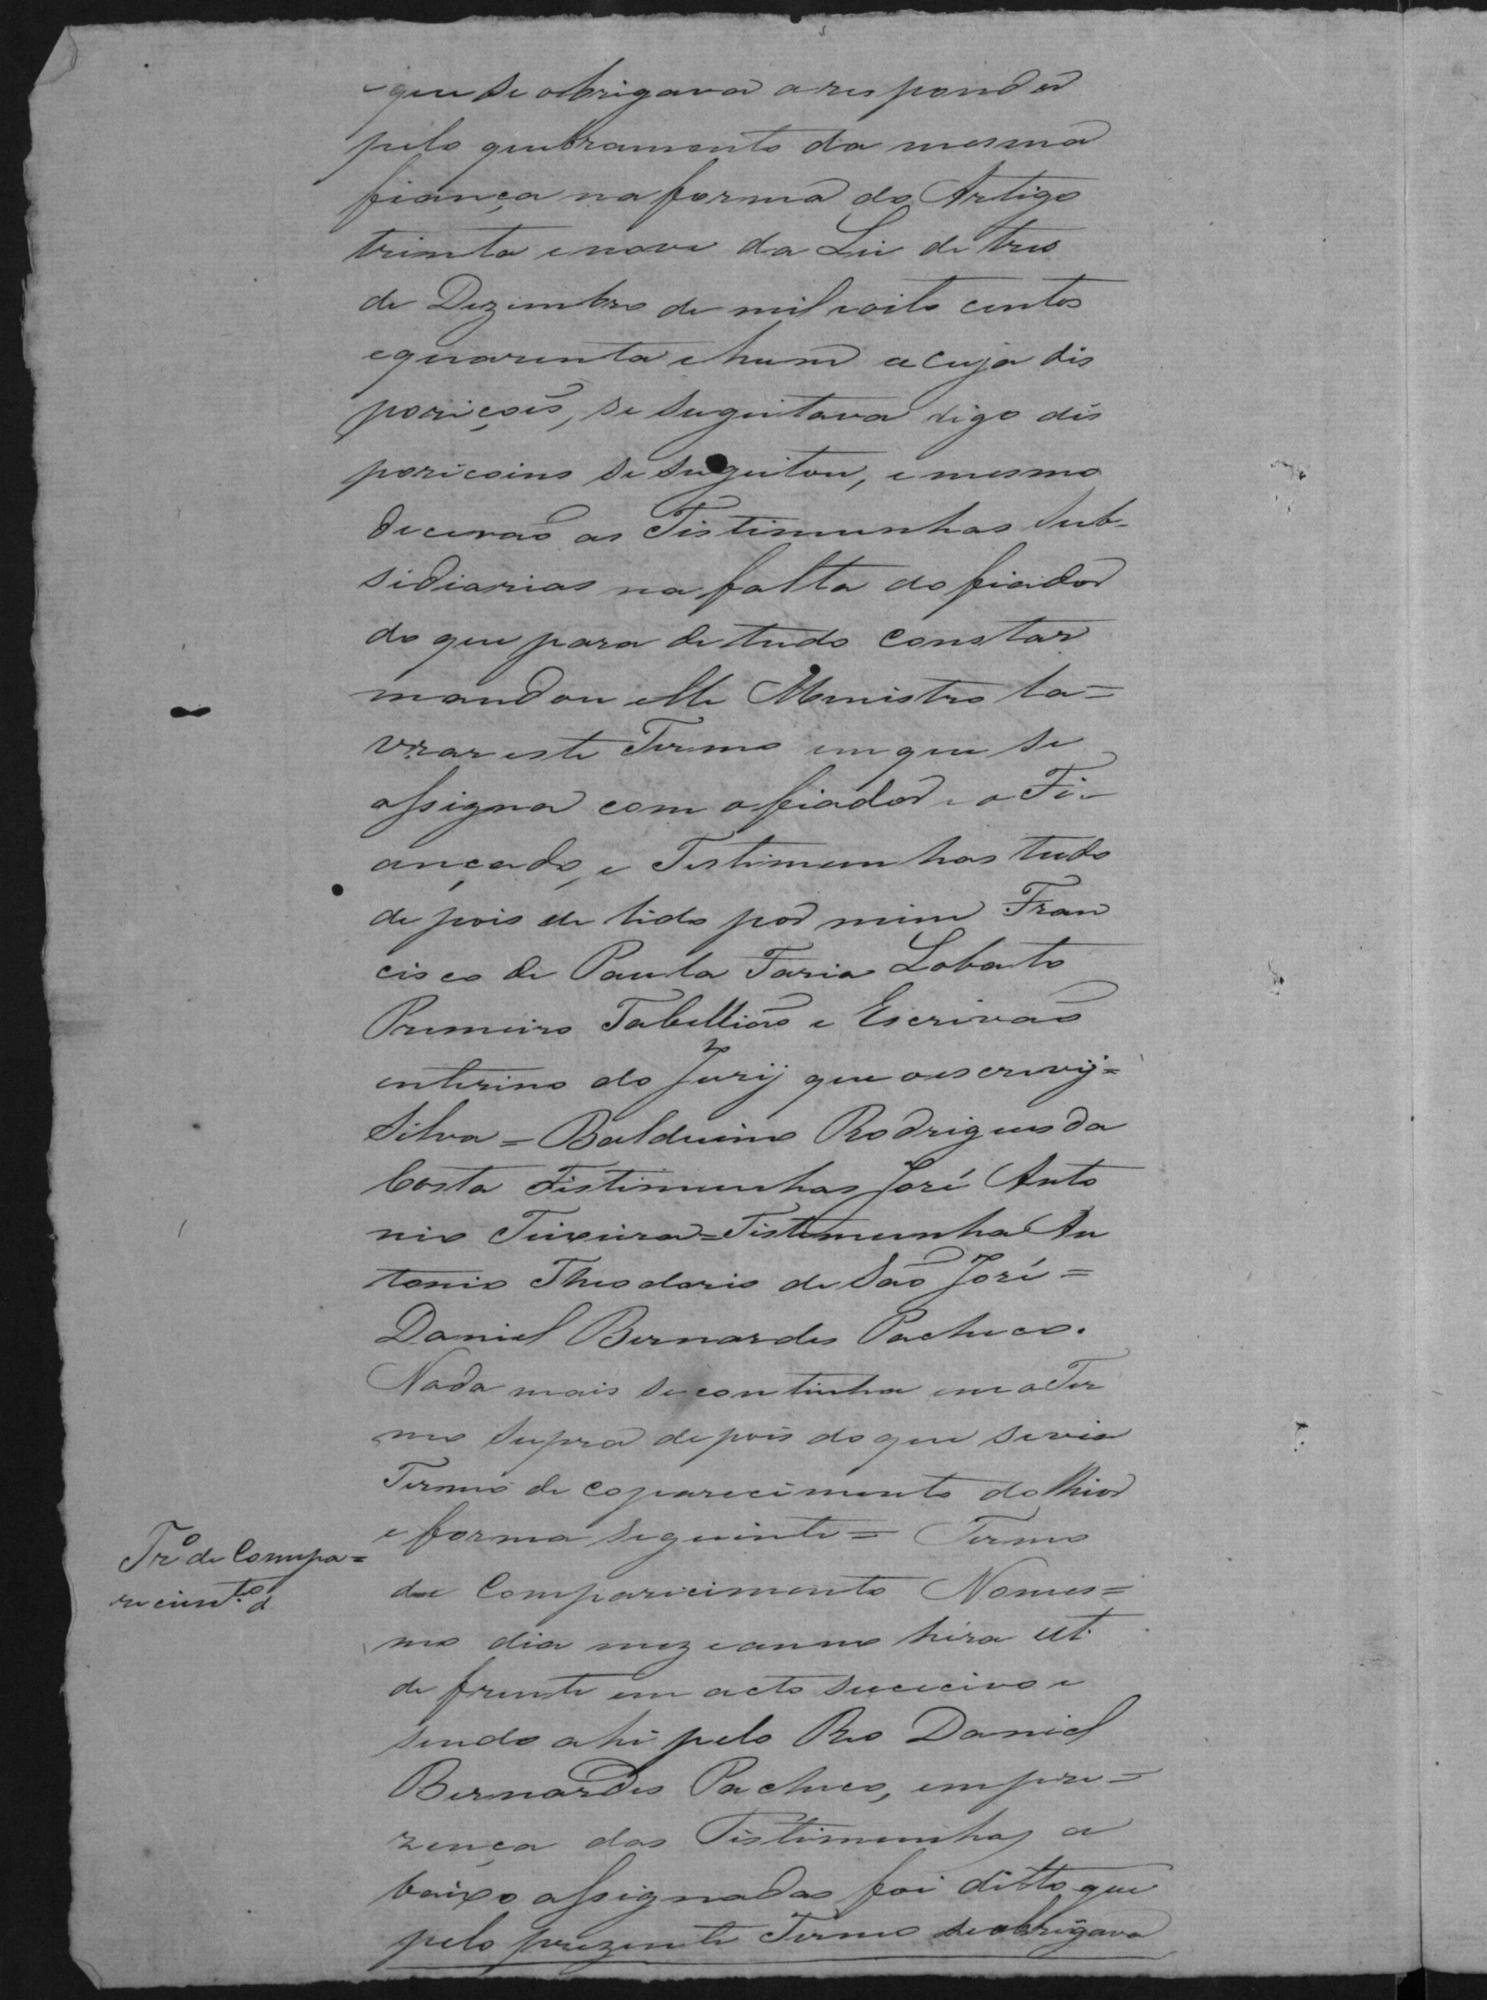 e que se obrigava a responder
pelo quebramento da mesma
fiança na forma do Artigo
trinta e nove da Lei de tres
de Dezembro de mil e oito centos
e quarenta e hum a cuja dis
poziçoẽs, se sugeitava digo dis
poziçoins se sugeitou, e mesmo
dicerão as Testimunhas Sub-
sidiarias na falta do fiador
do que para de tudo constar
mandou elle Menistro la=
vrar este Termo em que se
assigna com o fiador e o Fi-
ançado, e Testimunhas tudo
de pois de lido por mim Fran
cisco de Paula Faria Lobato
Premeiro Tabellião e Escrivão
enterino do Jurij que o escrevij=
Silva = Balduino Rodrigues da
Costa Testimunhas José Anto
nio Teixeira = Testemunha An
tonio Theodorio de São José =
Daniel Bernardes Pacheco.
Nada mais se continha em o Ter
mo supra de pois do que se via
Termo de coparecimento do theor
e forma seguinte = Termo
de Comparecimento No mes=
mo dia mez e anno hera ut
de frente em acto sucecivo e
sendo ahi pelo Reo Daniel
Bernardes Pacheco, em pre=
zença das Testimunhas a
baixo assignadas foi ditto que
pelo prezente Termo se obrigava
Trº de Compa=
recimtº d